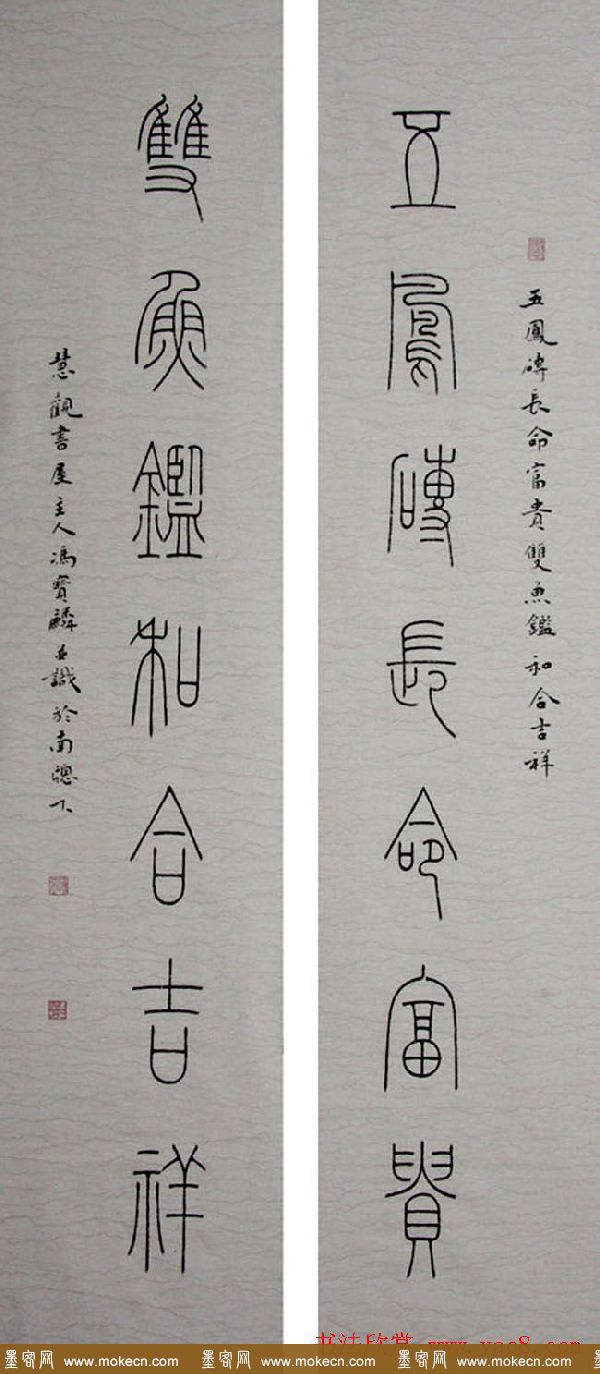 五鳳磚長命富貴雙魚鑑和合吉祥
五鳳磚長命富貴
雙魚鑑和合吉祥
慧觀書屋主人馮寶麟並識於南窗下
书法欣赏 www.yac8.com
墨客网 www.mokecn.com 墨客网 www.mokecn.com 墨客网 www.mokecn.com